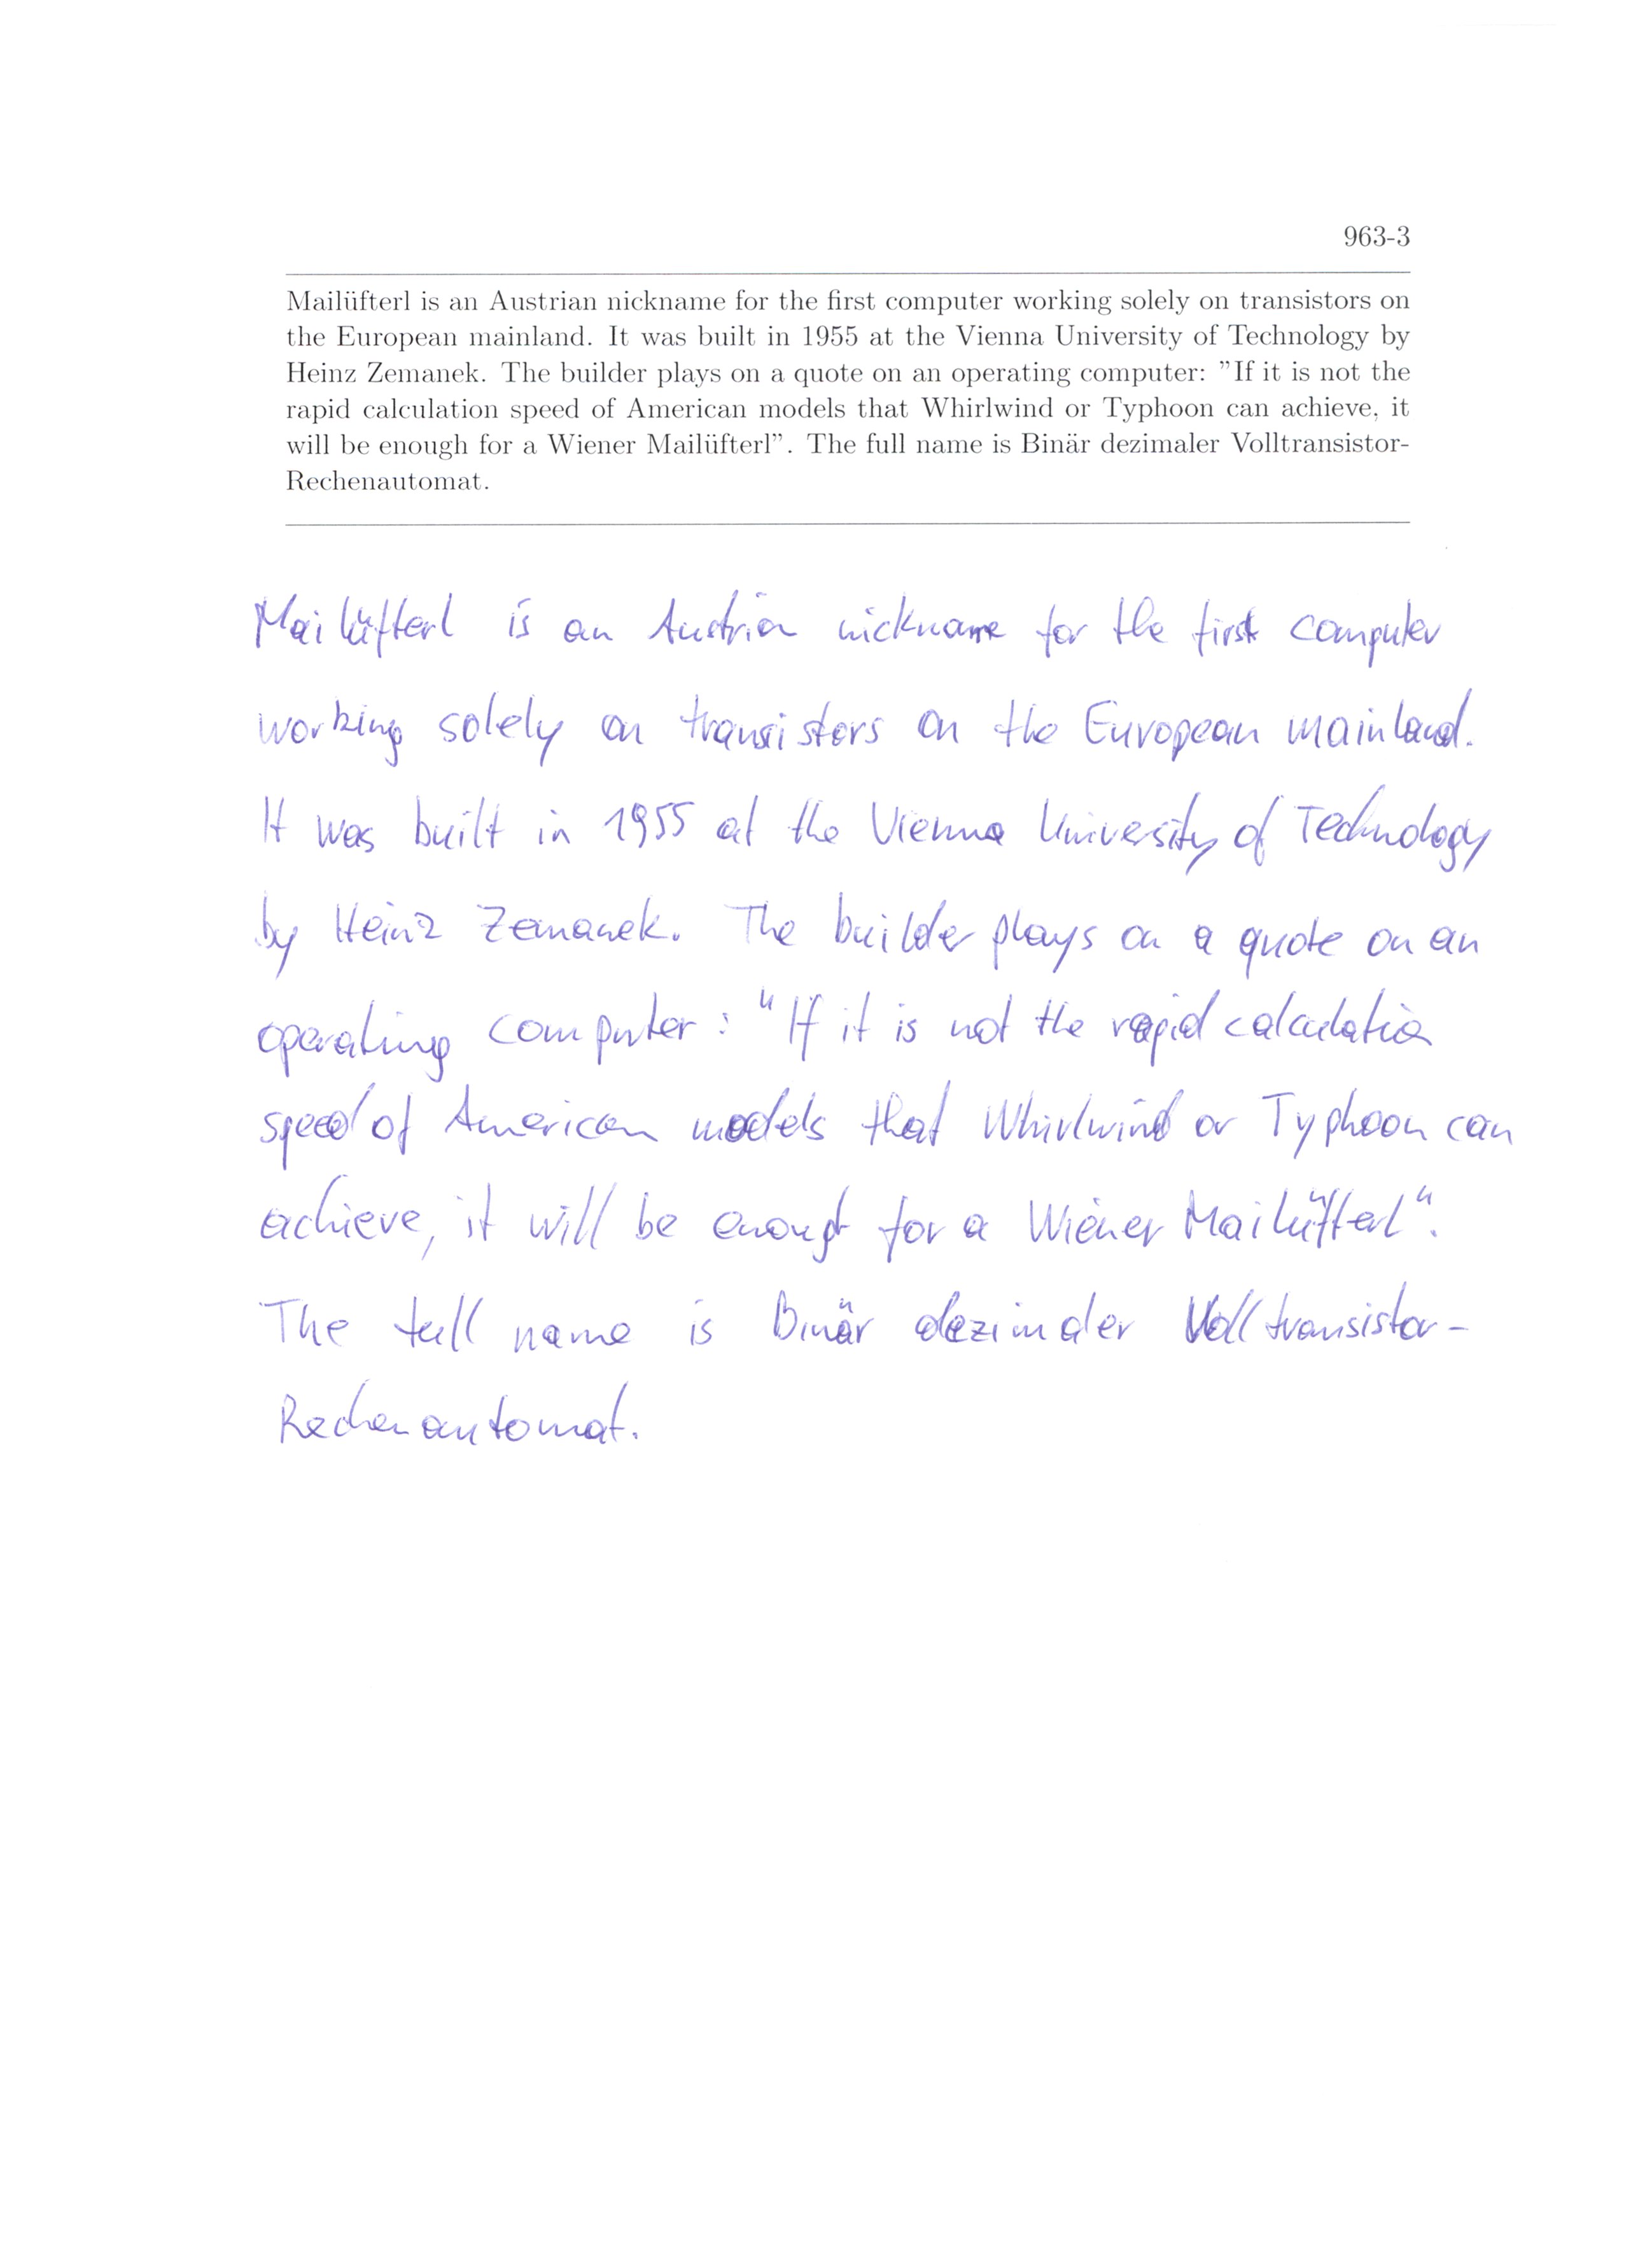 963-3
Mailüfterl is an Austrian nickname for the first computer working solely on transistors on
the European mainland. It was built in 1955 at the Vienna University of Technology by
Heinz Zemanek. The builder plays on a quote on an operating computer: ”If it is not the
rapid calculation speed of American models that Whirlwind or Typhoon can achieve, it
will be enough for a Wiener Mailüfterl”. The full name is Binär dezimaler Volltransistor-
Rechenautomat.
Mailüfterl is an Austrian nickname for the first computer
working solely on transistors on the European mainland.
It was built in 1955 at the Vienna University of Technology
by Heinz Zemanek. The builder plays on a quote on an
operating computer: "If it is not the rapid calculation
speed of American models that Whirlwind or Typhoon can
achieve, it will be enough for a Wiener Mailüfterl".
The full name is Binär dezimaler Volltransistor-
Rechenautomat.